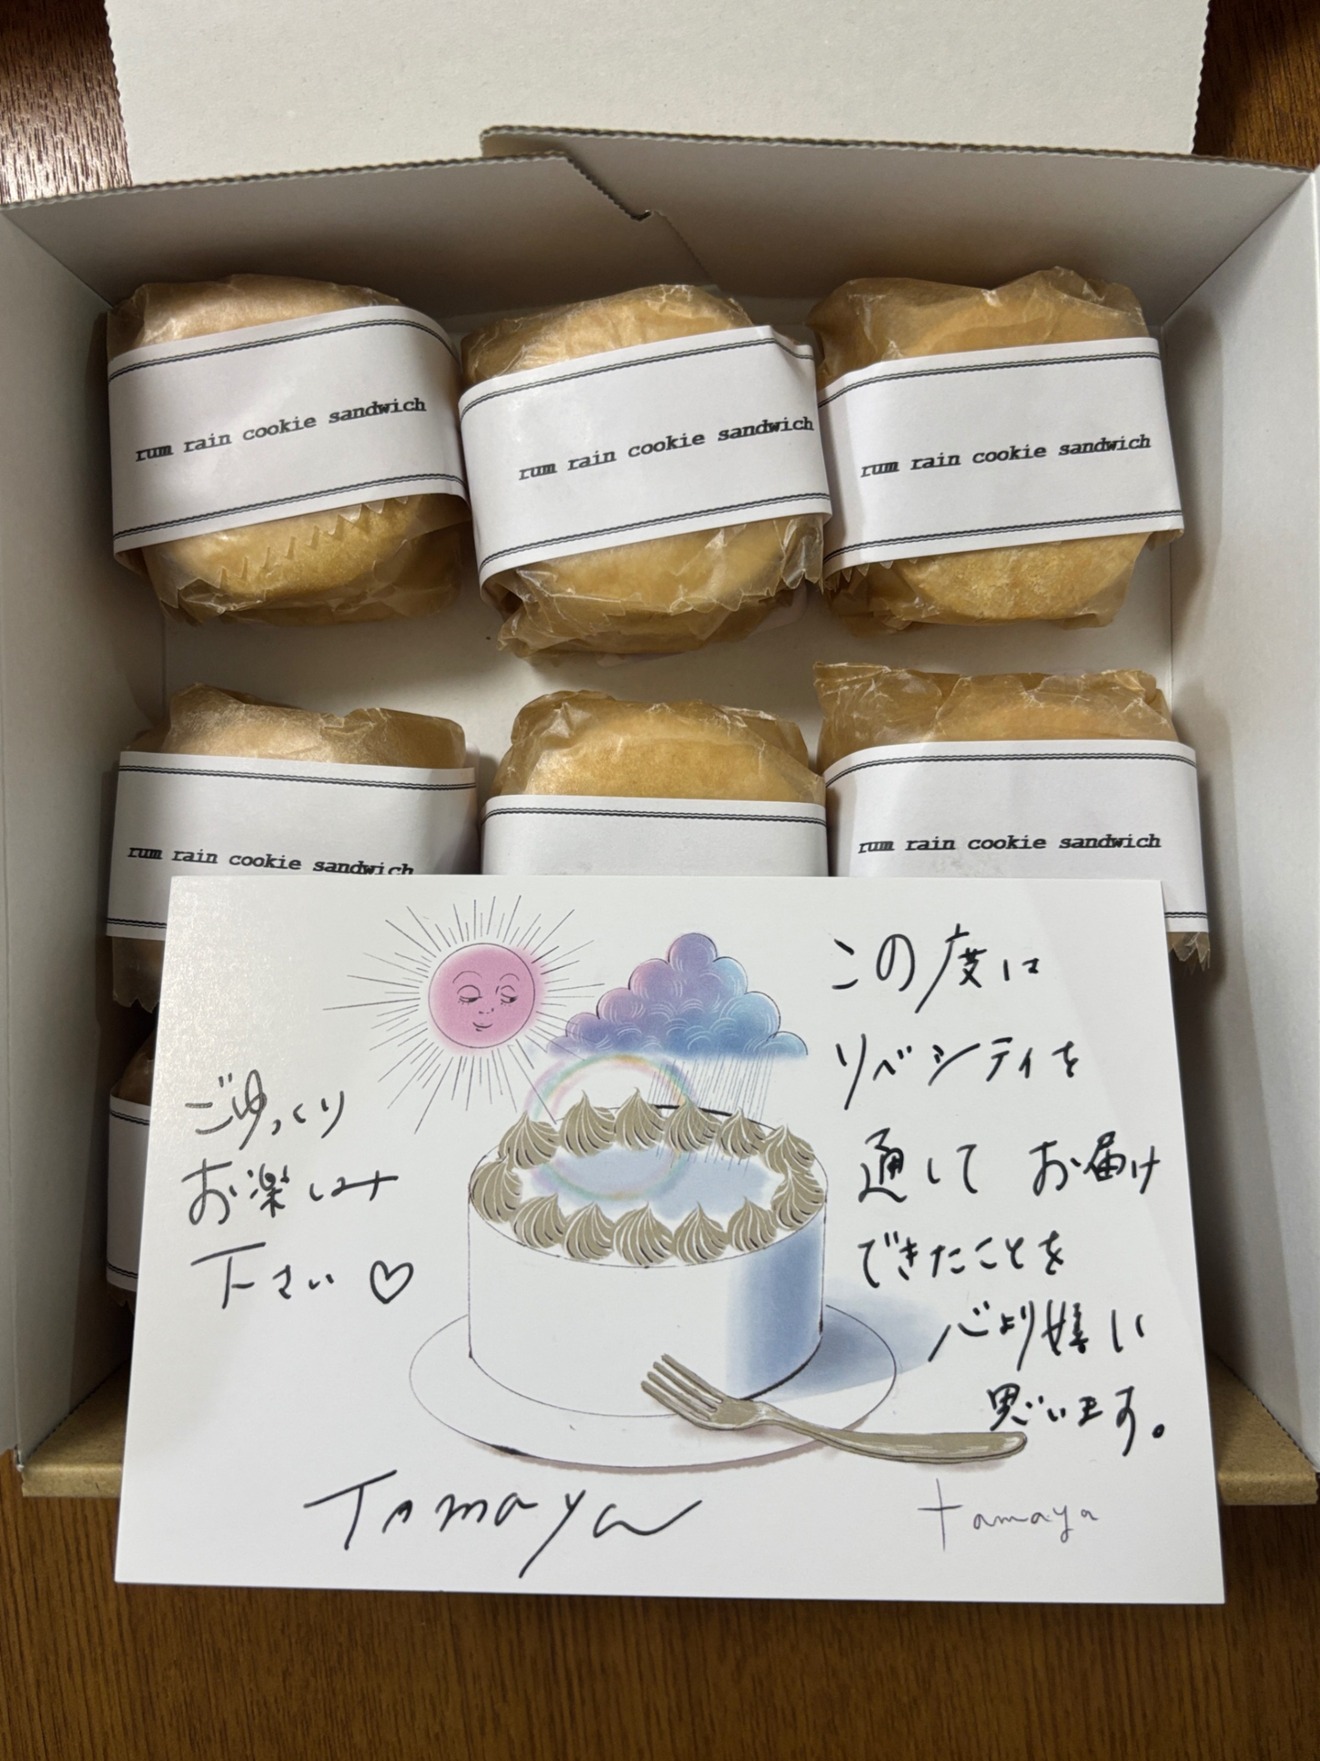 rum rain cookie sandwich
rum rain cookie sandwich
rum rain cookie sandwich
rum rain cookie sandwich
rum rain cookie sandwich
この度は
リベシティを
通して お届け
できたことを
心より嬉しい
思います。
ごゆっくり
お楽しみ
下さい♡
Tamaya
tamaya